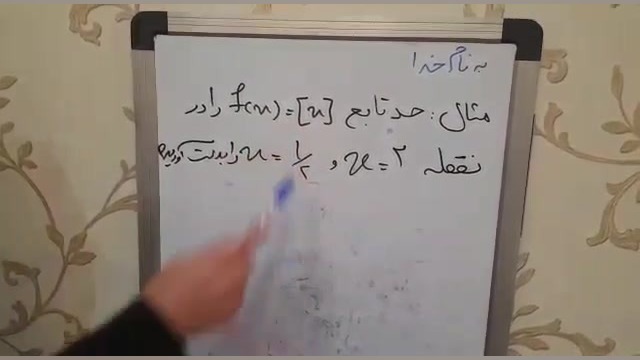 به نام خدا
مثال: حد تابع f(x)=[x] را در
نقطه x=۲ و x=۱/۲ را بدست آورید